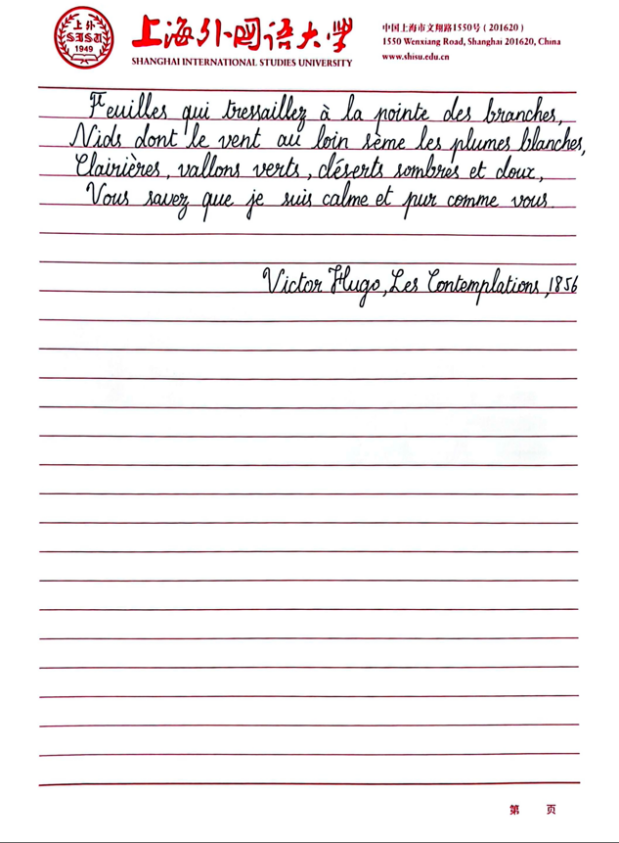 上外
SISU
1949
上海外国语大学
SHANGHAI INTERNATIONAL STUDIES UNIVERSITY
中国上海市文翔路1550号（201620）
1550 Wenxiang Road, Shanghai 201620, China
www.shisu.edu.cn
Feuilles qui tressaillez à la pointe des branches,
Nids dont le vent au loin sème les plumes blanches,
Clairières, vallons verts, déserts sombres et doux,
Vous savez que je suis calme et pur comme vous.
Victor Hugo, Les Contemplations, 1856
第 页